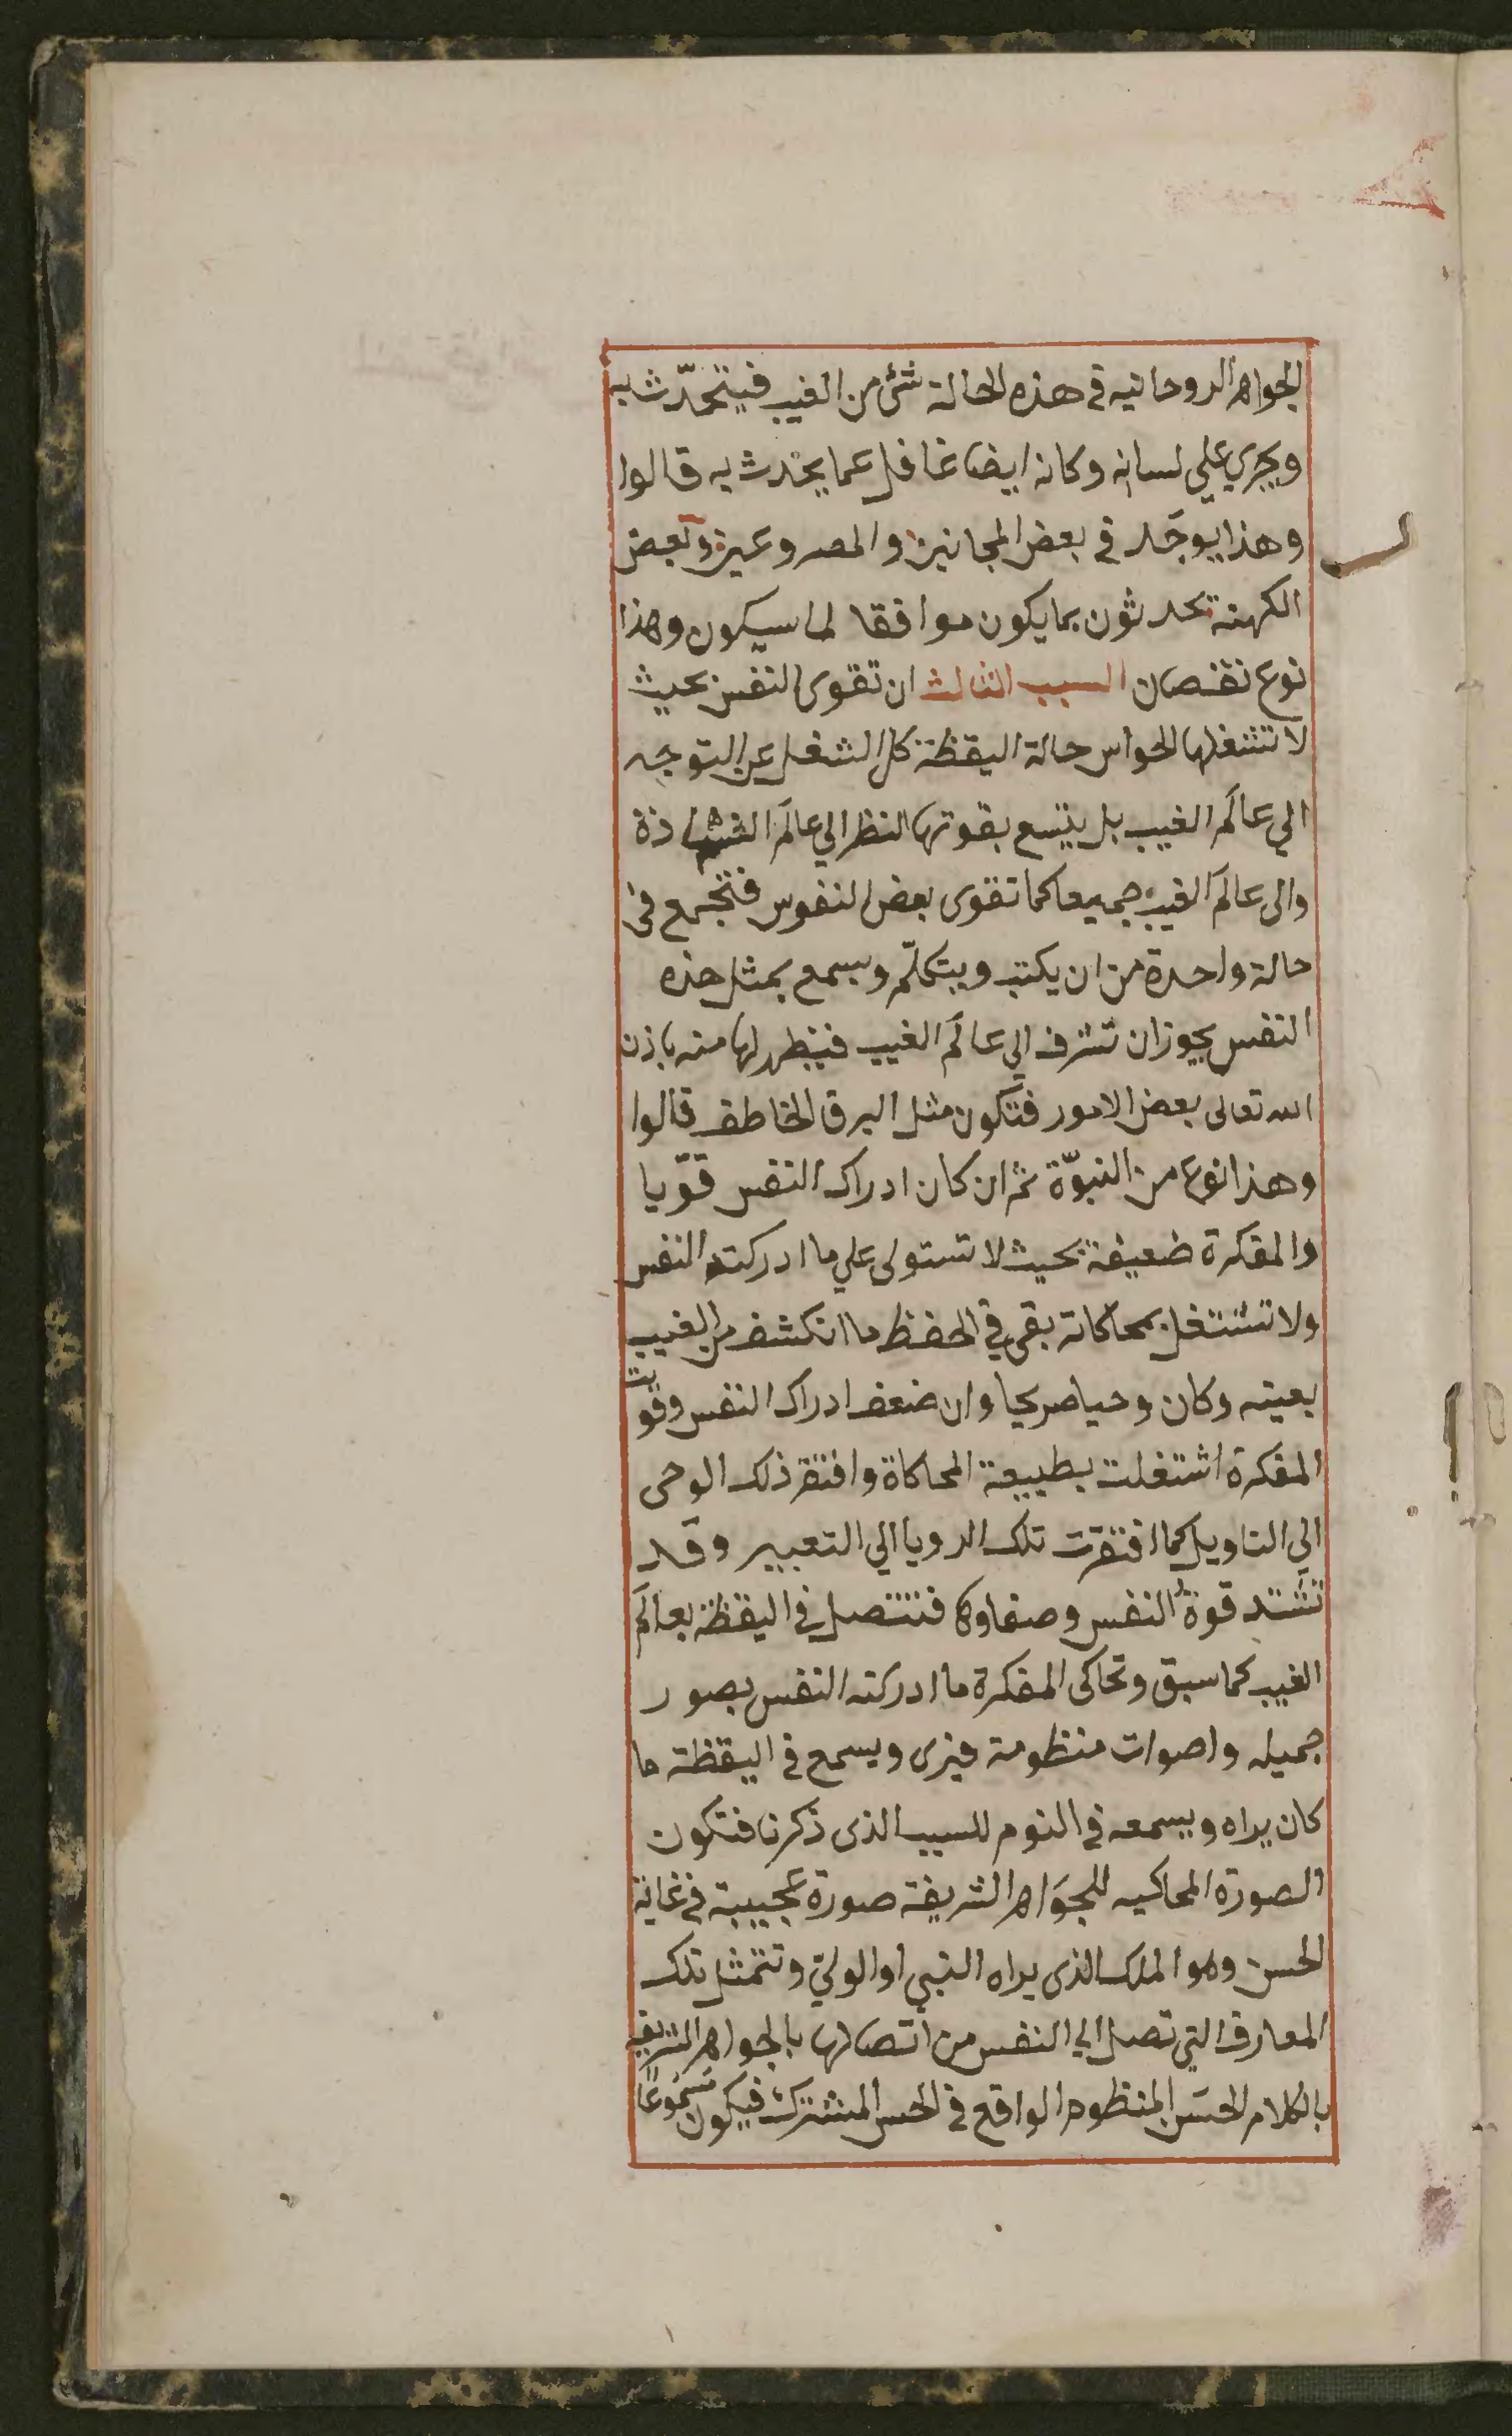 الجواهر الروحانيه في هذه الحالة شئ من الغيب فيتحدّث به
ويجري علي لسانه وكانه ايضا غافل عما يحدث به قالوا
وهذا يوجَد في بعض المجانين والمصروعين وبعض
الكهنة تحدثون بما يكون موافقا لما سيكون وهذا
نوع نقصان السبب الثالث ان تقوى النفس بحيث
لا تشغلها الحواس حالة اليقظة كل الشغل عن التوجه
الي عالَم الغيب بل يتسع بقوتها النظر الي عالَم الشهادة
والى عالَم الغيب جميعا كما تقوى بعض النفوس فتجمع في
حالة واحدة من ان يكتب ويتكلّم ويسمع بمثل هذه
النفس يجوز ان تشرف الي عالَم الغيب فيظهر لها منه باذن
الله تعالى بعض الامور فتكون مثل البرق الخاطف قالوا
وهذا نوع من النبوّة ثم ان كان ادراك النفس قوّيا
والمفكرة ضعيفة بحيث لا تستولى علي ما ادركته النفس
ولا تشتغل بمحاكاته بقي في الحفظ ما انكشف من الغيب
بعينه وكان وحيا صريحا وان ضعف ادراك النفس وقويت
المفكرة اشتغلت بطبيعة المحاكاة وافتقر ذلك الوحى
الي التاويل كما افتقرت تلك الرويا الي التعبير وقد
تشتد قوة النفس وصفاوها فتتصل في اليقظة بعالَم
الغيب كما سبق وتحاكى المفكرة ما ادركته النفس بصور
جميله واصوات منظومة فيرى ويسمع في اليقظة ما
كان يراه ويسمعه في النوم للسبب الذى ذكرنا فتكون
الصورة المحاكيه للجوَاهر الشريفة صورة عجيبة في غاية
الحسن وهو الملك الذى يراه النبي او الولي وتتمثل تلك
المعارف التي تصل الي النفس من اتصالها بالجواهر الشريفه
بالكلام الحسَن المنظوم الواقع في الحس المشترك فيكون مسموعًا